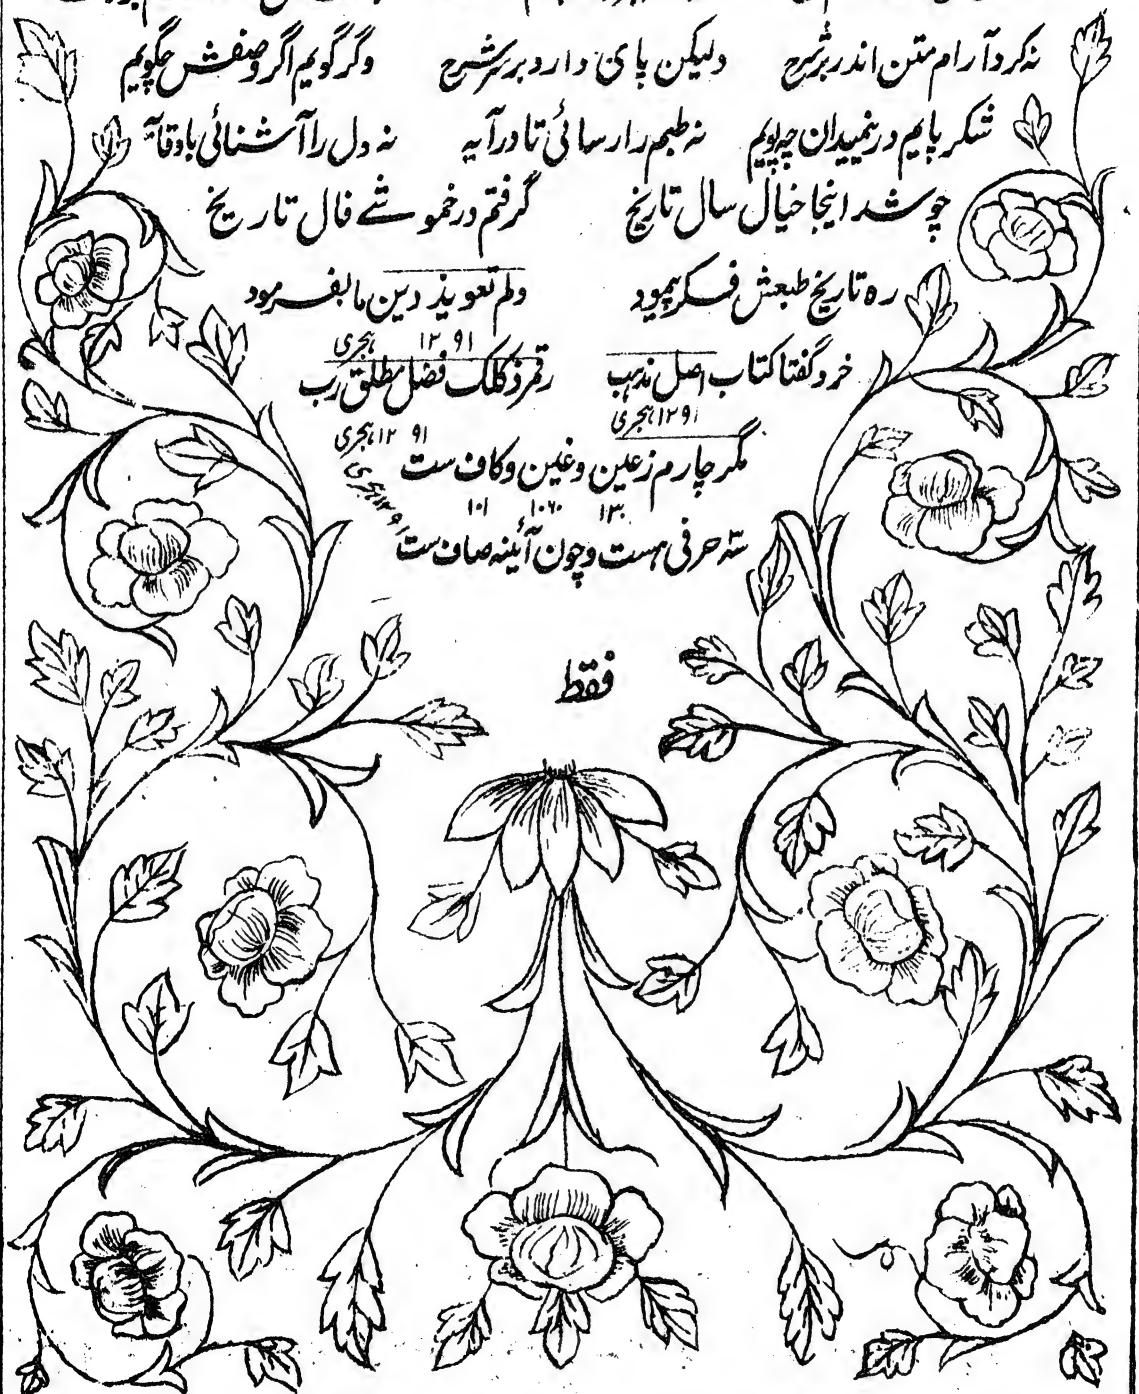 نه کرد آرام متن اندر بر شرح ولیکن پای دارد بر سر شرح وگر گویم اگر وصفش چگویم
شکر پایم درینمیدان چه پویم نه طبعم را رسائی تا درآیه نه دل را آشنائی با وقایه
چو شد اینجا خیال سال تاریخ گرفتم در خموشے فال تاریخ
ره تاریخ طبعش فکر پیمود دلم تعویذ دین ما بفرمود
۱۲۹۱ هجری
خرد گفتا کتاب اصل مذهب رقمزد کلک فضل مطلق رب
۱۲۹۱ هجری ۱۲۹۱ هجری
مگر چارم ز عین و غین و کاف ست
۱۳۰ ۱۰۶۰ ۱۰۱
سه حرفی هست و چون آئینه صاف ست ۱۲۹۱ هجری
فقط